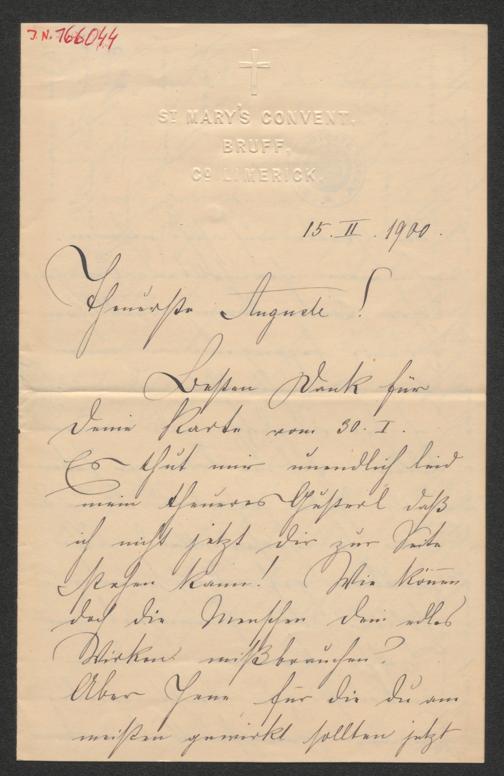 J.N. 166044
ST MARY'S CONVENT.
BRUFF,
CO LIMERICK.
15. II. 1900.
Theuerste Auguste!
Besten Dank für
Deine Karte vom 30. I.
Es thut mir unendlich leid
mein theueres Gusterl daß
ich nicht jetzt dir zur Seite
stehen kann! Wie können
doch die Menschen dein edles
Wirken mißbrauchen?
Aber Jene für die du am
meisten gewirkt sollten jetzt